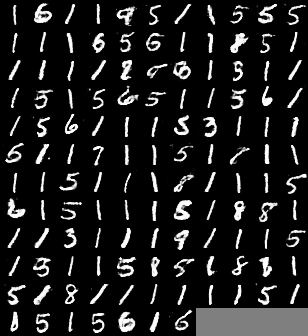 1 6 1 1 9 5 1 1 5 5 5
1 1 1 6 5 6 1 1 8 5 1
1 1 1 1 8 5 8 1 5 1 1
1 5 1 5 6 5 1 1 5 6 1
1 5 6 1 1 1 5 3 1 1 1
6 1 1 9 1 1 5 1 8 1 1
1 1 5 1 1 1 8 1 1 1 5
6 1 5 1 1 1 6 1 8 8 1
1 1 3 1 1 1 9 1 1 1 5
1 5 1 1 5 8 5 1 8 8 1
5 1 8 1 1 1 1 1 1 5 1
1 5 1 5 6 1 6